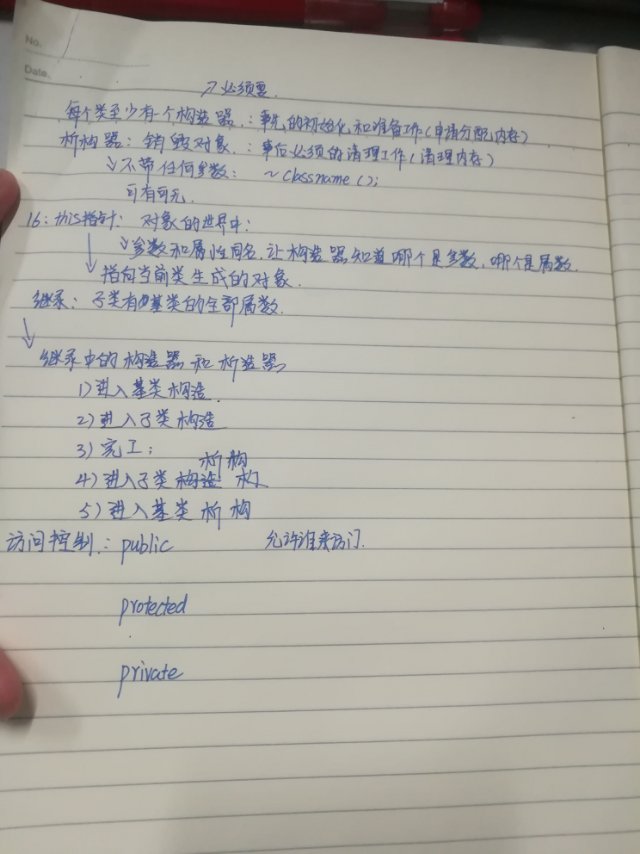 No.
Date.
必须要
每个类至少有一个构造器：事先的初始化和准备工作(申请分配内存)
析构器：销毁对象：事后必须的清理工作(清理内存)
↘不带任何参数： ~classname();
可有可无.
16：this指针：对象的世界中：
↘参数和属性同名，让构造器知道哪个是参数，哪个是属数.
↓指向当前类生成的对象.
继承：子类有基类的全部属数.
继承中的构造器和析造器
1)进入基类构造.
2)进入子类构造
3)完工：
析构
4)进入子类构造 构
5)进入基类析构
访问控制：public 允许谁来访门.
protected
private